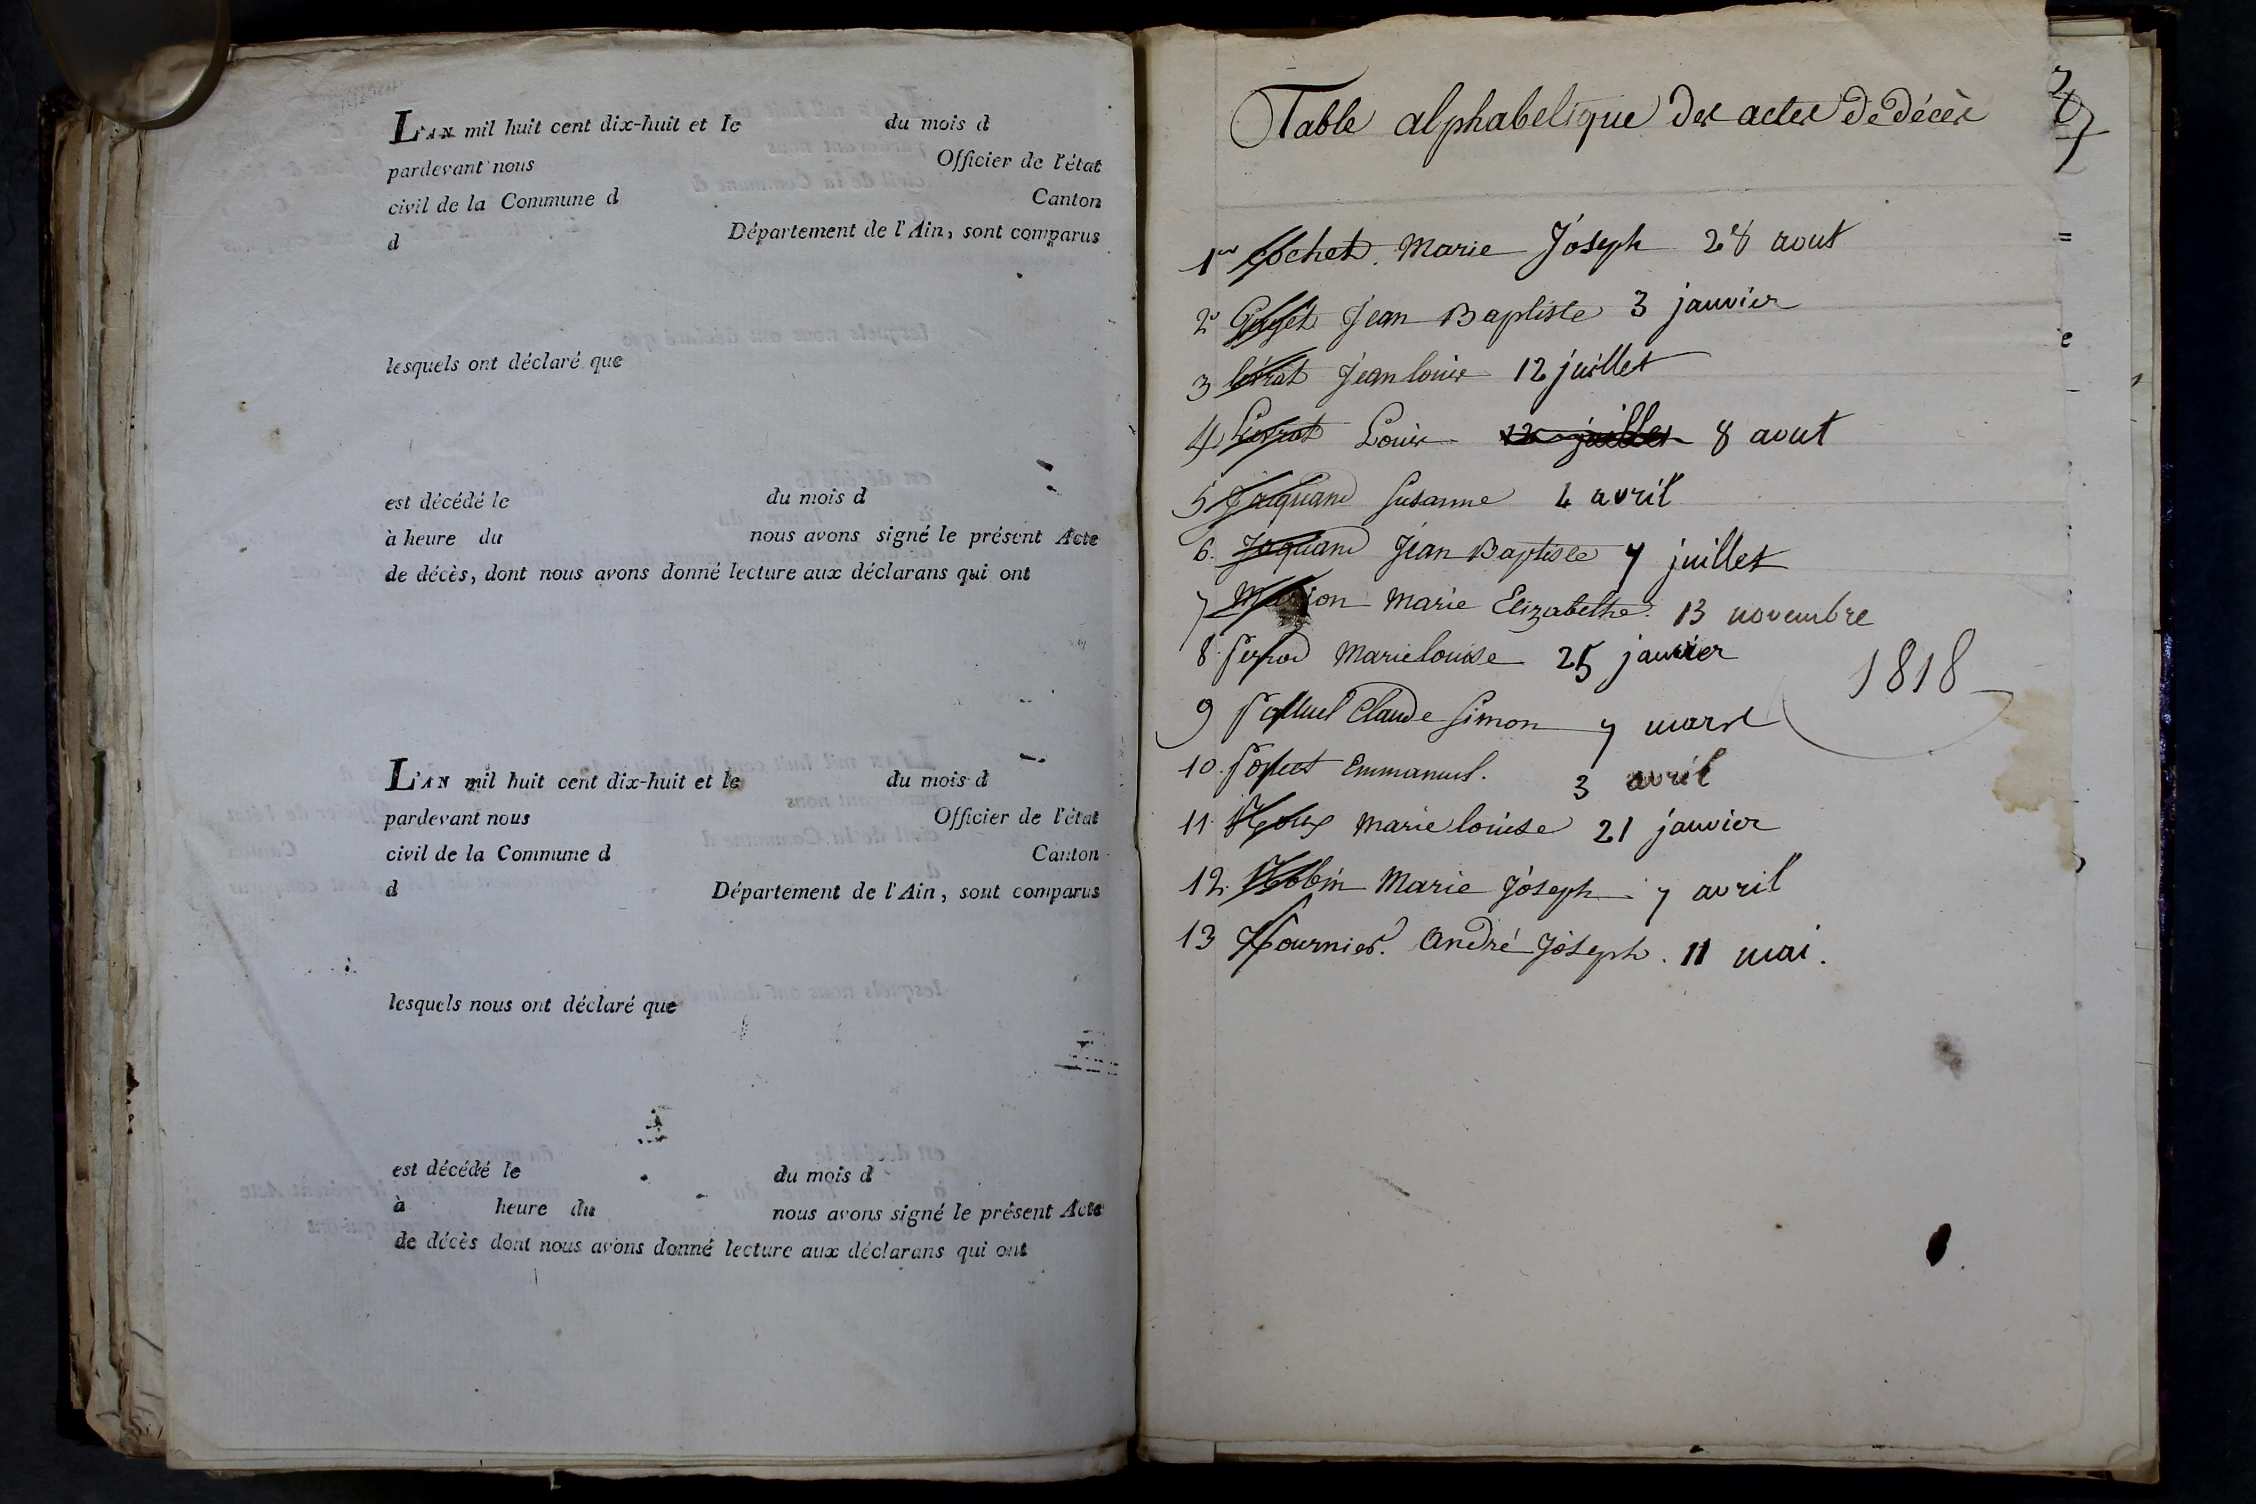 L'AN mil huit cent dix-huit et le du mois d
pardevant nous Officier de l'état
civil de la Commune d Canton
d Département de l'Ain, sont comparus
lesquels ont déclaré que
est décédé le du mois d
à heure du nous avons signé le présent Acte
de décès, dont nous avons donné lecture aux déclarans qui ont
L'AN mil huit cent dix-huit et le du mois d
pardevant nous Officier de l'état
civil de la Commune d Canton
d Département de l'Ain, sont comparus
lesquels nous ont déclaré que
est décédé le du mois d
à heure du nous avons signé le présent Acte
de décès dont nous avons donné lecture aux déclarans qui ont
Table alphabetique des actes de décès
1er Cochet. Marie Joseph 28 aout
2e Jean Baptiste 3 janvier
3 levrat Jean louis 12 juillet
4 Levrat Louis 12 juillet 8 aout
5 Jaquand Susanne 4 avril
6. Jaquand Jean Baptiste 7 juillet
7 Marie Elizabethe. 13 novembre
8. Perrod Marie louise 25 janvier
1818
9 Claude Simon 7 mars
10. Emmanuel. 3 avril
11. Roux marie louise 21 janvier
12. Robin Marie Joseph 7 avril
13 Tournier. André Joseph. 11 mai.